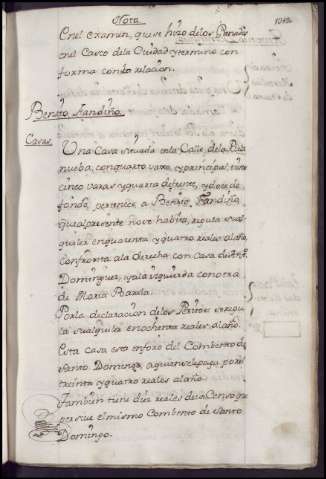 Nota
1012.
En el examen, que se hizo de los Generos
en el Casco de la Ciudad, y termino con
forma con la relacion.
Benito Fandiño
Casas.
Una Casa situada en la Calle de la Rua
nueba, con quarto vaxo, y principal, tiene
cinco varas y quarta de frente, y doce de
fondo, pertenece a Benito Fandiño
que al presente no ve havita, regula su al
quiler en quarenta y quatro reales al año,
Confronta ala derecha con casa de
Dominguez, y ala izquierda con otra
de Maria Varela.
Por la declaracion de los Peritos se regu
la su alquiler en ochenta reales al año.
Esta casa esta en foro del Combento de
Santo Domingo, a quien se le paga por el
treinta y quatro reales al año.
Tambien tiene diez reales de a Censo que
percive el mismo Combento de Santo
Domingo.